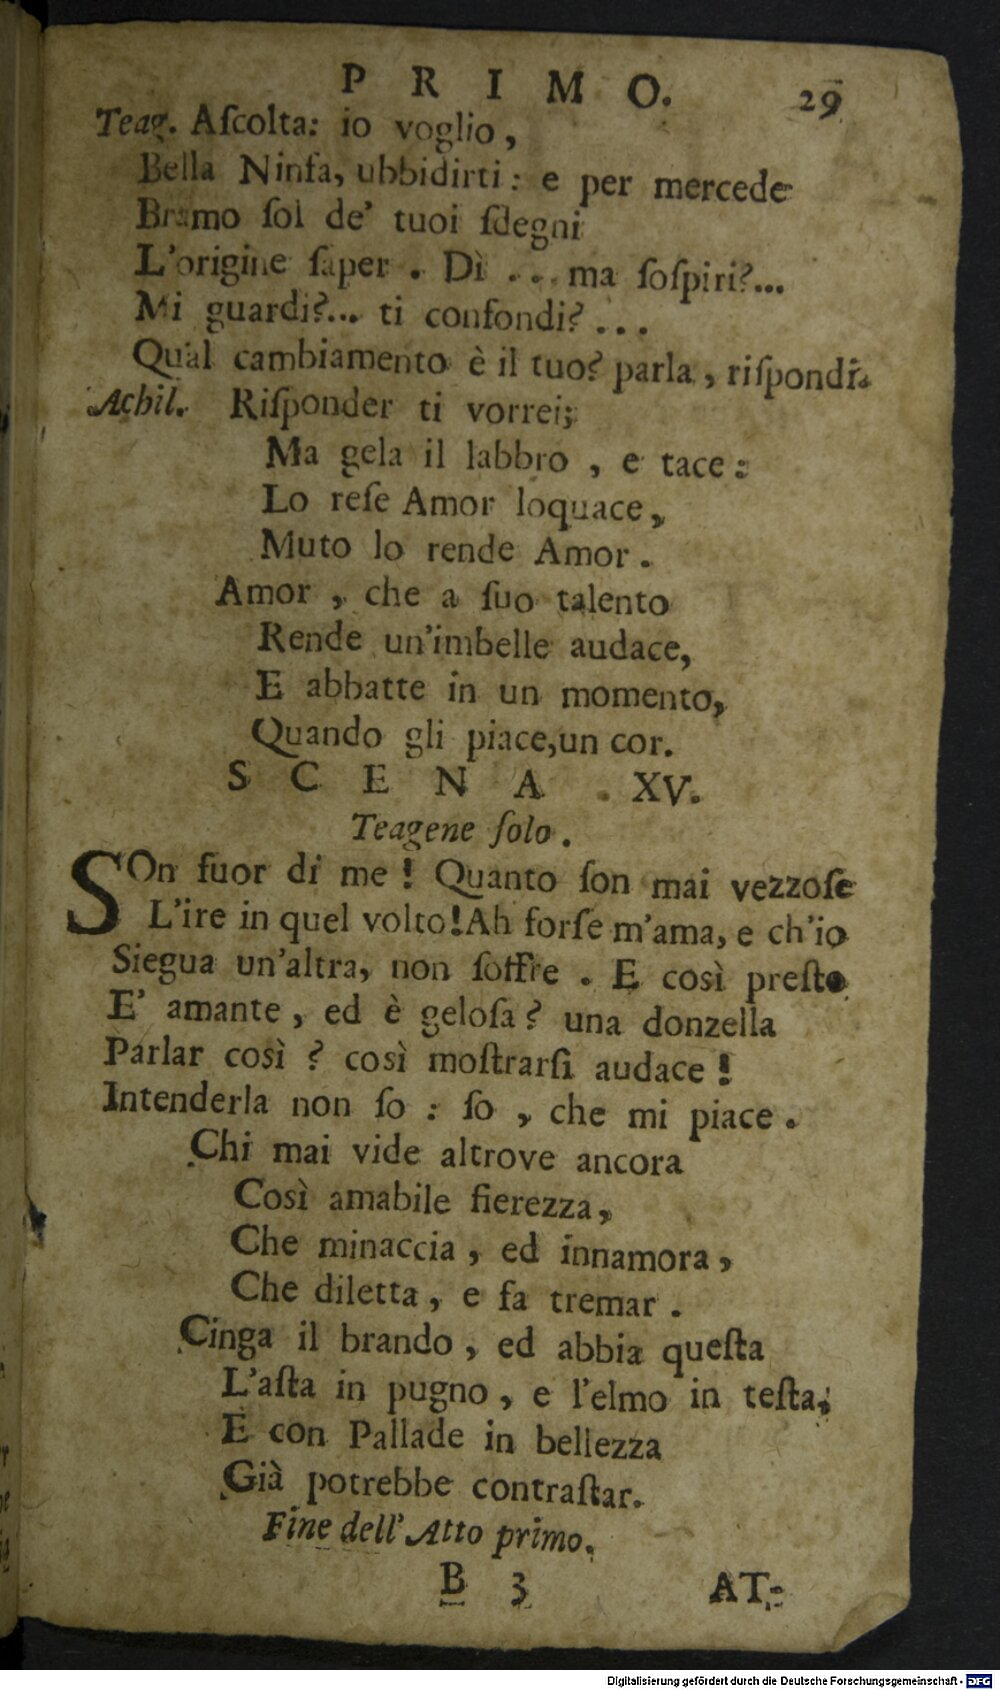 PRIMO. 29
Teag. Aſcolta: io voglio,
Bella Ninfa, ubbidirti: e per mercede
Bramo ſol de' tuoi ſdegni
L'origine ſaper. Dì ... ma ſoſpiri?...
Mi guardi?... ti confondi?...
Qual cambiamento è il tuo? parla, riſpondi.
Achil. Riſponder ti vorrei;
Ma gela il labbro, e tace:
Lo reſe Amor loquace,
Muto lo rende Amor.
Amor, che a ſuo talento
Rende un'imbelle audace,
E abbatte in un momento,
Quando gli piace, un cor.
SCENA XV.
Teagene ſolo.
SOn fuor di me! Quanto ſon mai vezzoſe
L'ire in quel volto! Ah forſe m'ama, e ch'io
Siegua un'altra, non ſoffre. E così preſto
E' amante, ed è geloſa? una donzella
Parlar così? così moſtrarſi audace!
Intenderla non ſo: ſo, che mi piace.
Chi mai vide altrove ancora
Così amabile fierezza,
Che minaccia, ed innamora,
Che diletta, e fa tremar.
Cinga il brando, ed abbia queſta
L'aſta in pugno, e l'elmo in teſta;
E con Pallade in bellezza
Già potrebbe contraſtar.
Fine dell'Atto primo.
B 3 AT-
Digitalisierung gefördert durch die Deutsche Forschungsgemeinschaft - DFG